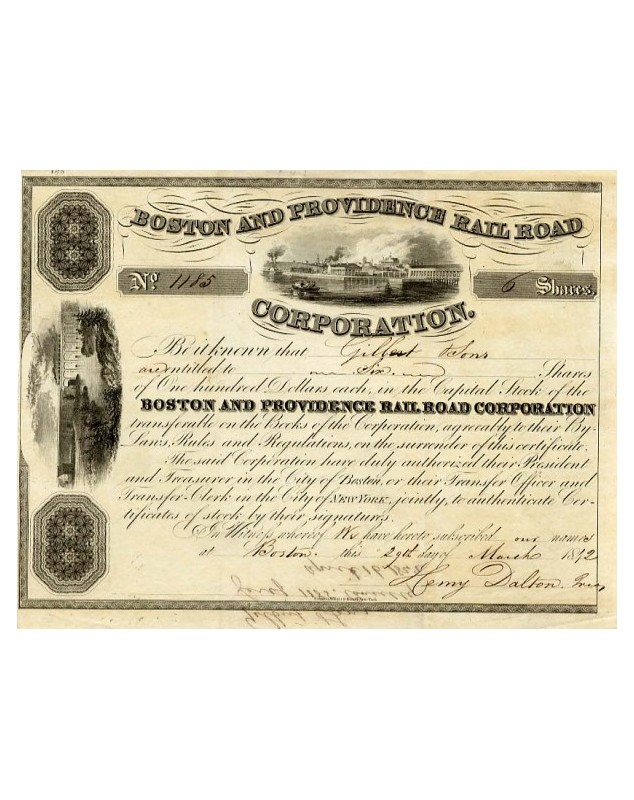 BOSTON AND PROVIDENCE RAIL ROAD
No. 1185
6 Shares
CORPORATION.
Be it known that Gilbert & Sons
are entitled to Six Shares
of One hundred Dollars each, in the Capital Stock of the
BOSTON AND PROVIDENCE RAIL ROAD CORPORATION
transferable on the Books of the Corporation, agreeably to their By-
Laws, Rules and Regulations, on the surrender of this certificate.
The said Corporation have duly authorized their President
and Treasurer in the City of Boston, or their Transfer Officer and
Transfer-Clerk in the City of NEW YORK, jointly, to authenticate Cer-
tificates of stock by their signatures.
In Witness whereof We have hereto subscribed our names
at Boston. this 29th day of March 18
Henry Dalton. Treas